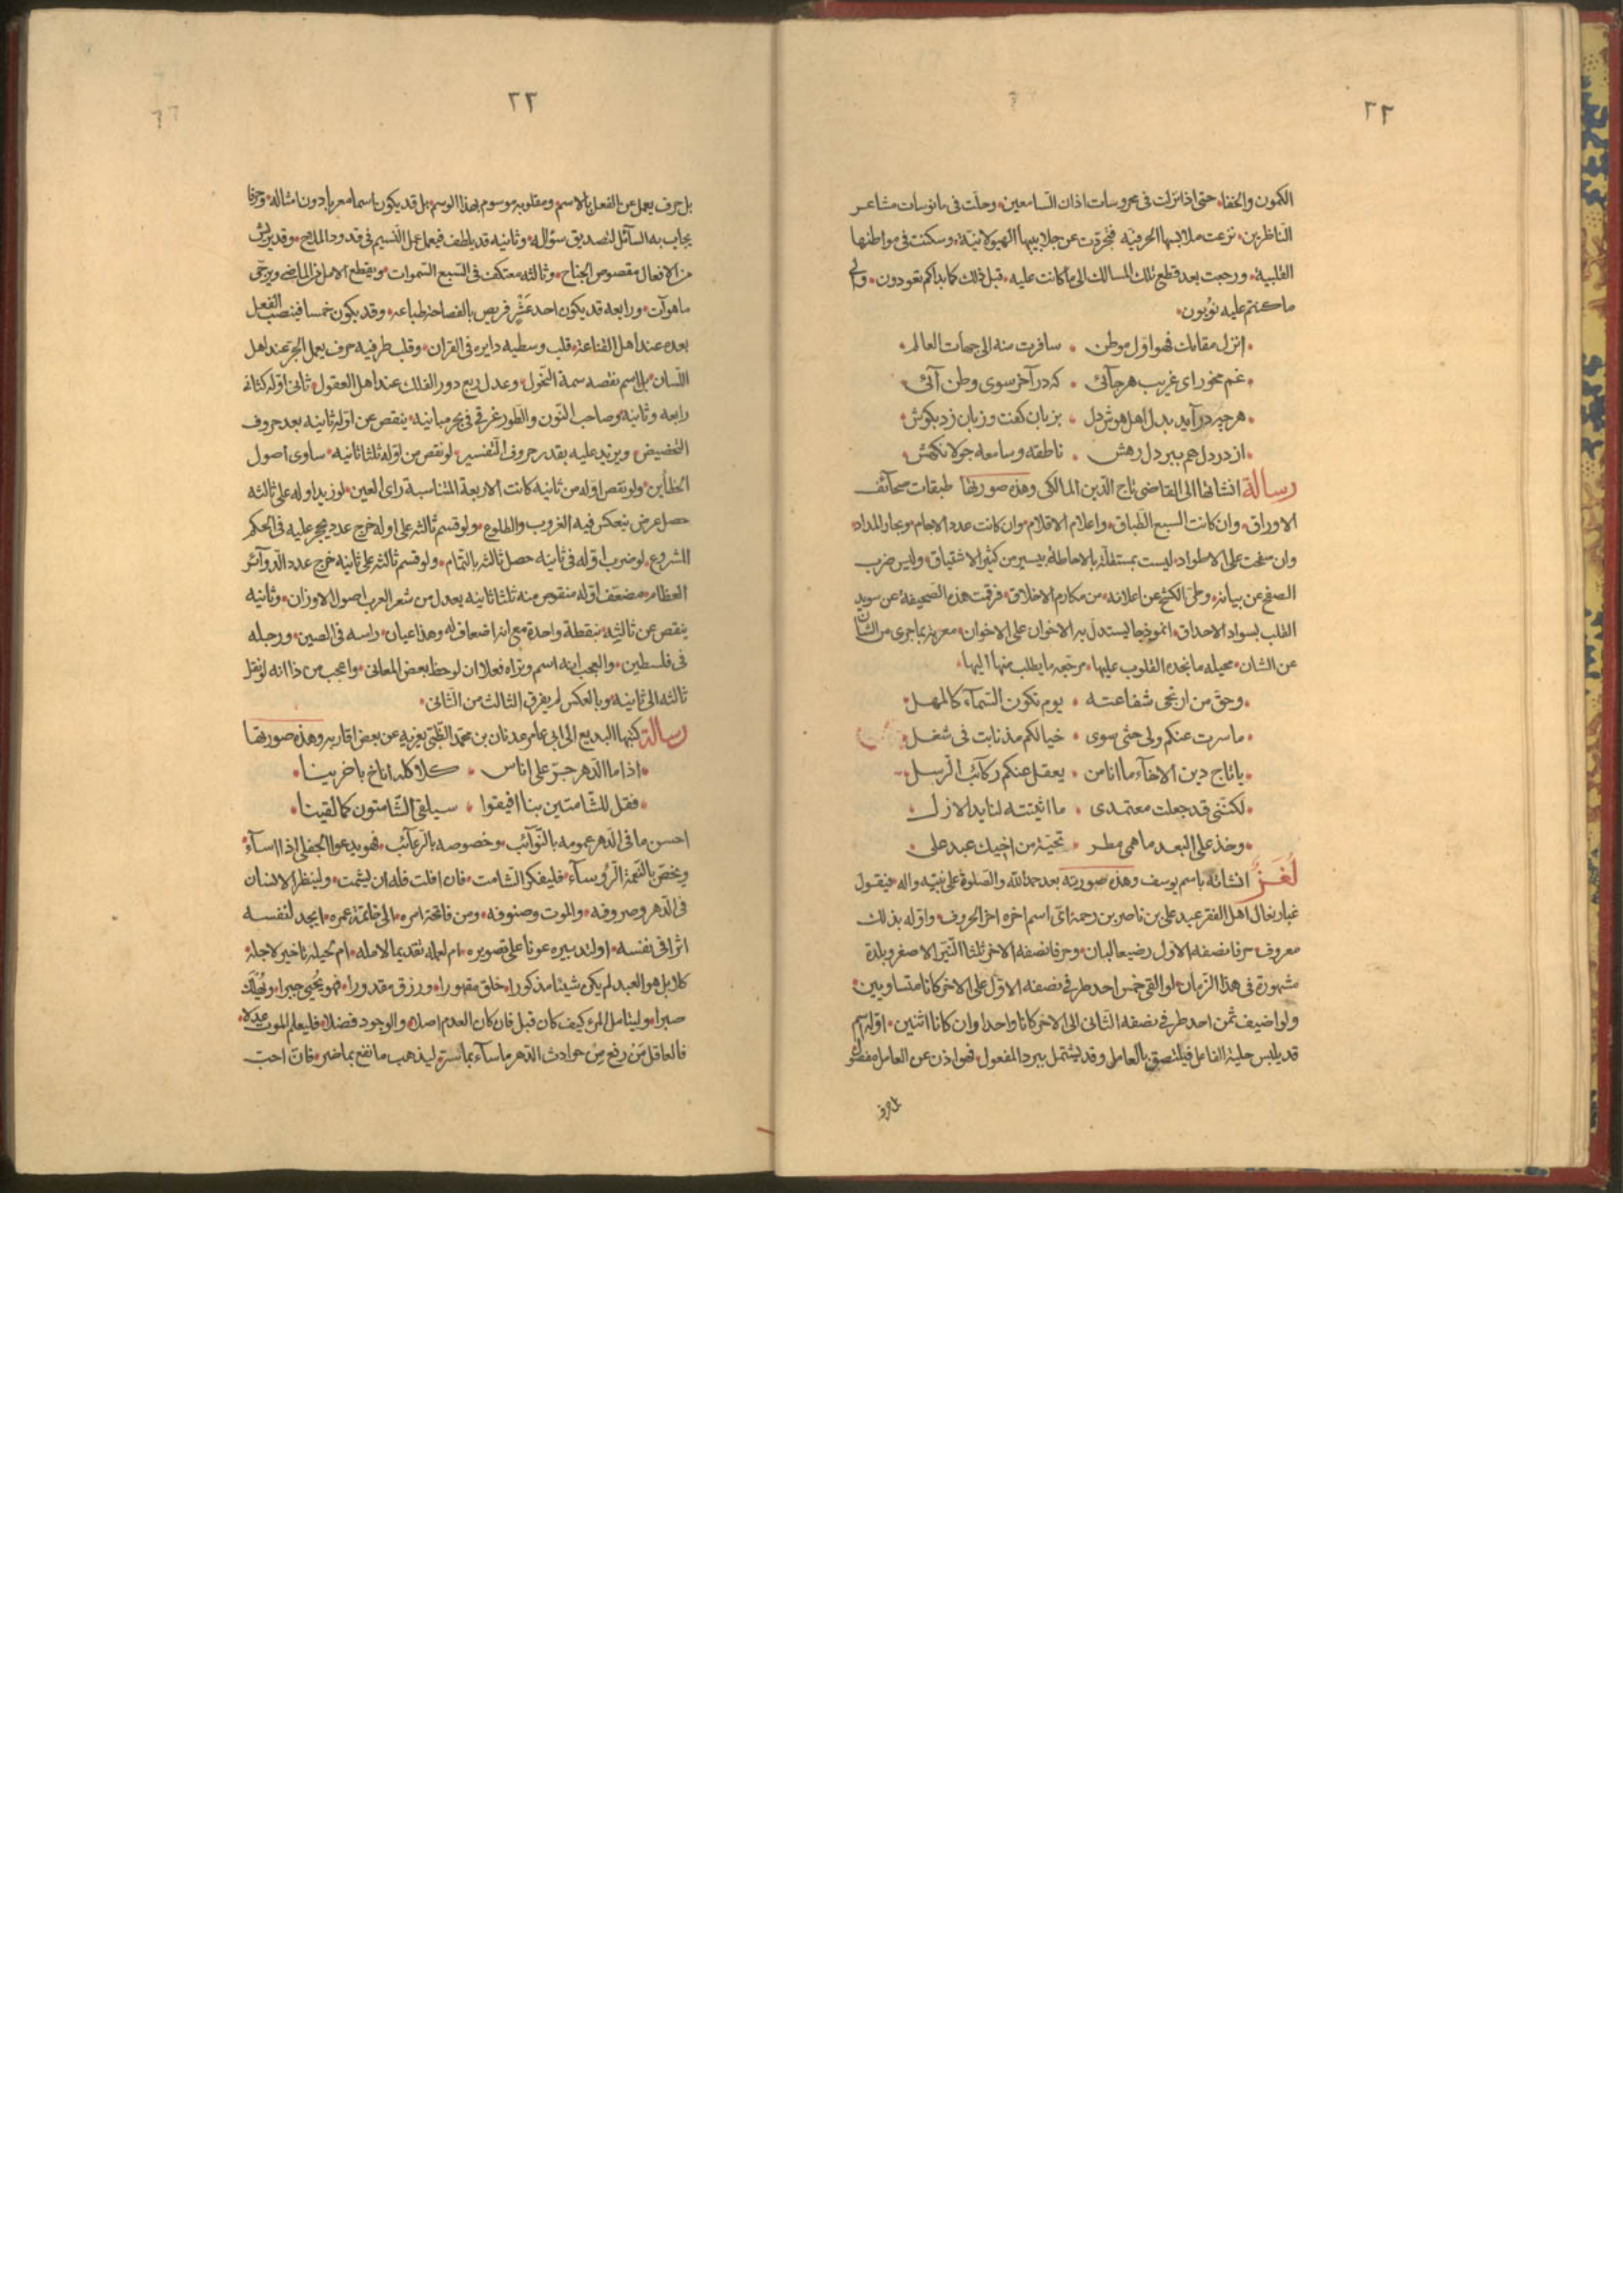 ٢٢
الكمون والخفاء حتى اذا نزلت فى محروسات اذان السامعين وحلت فى مانوسات مشاعر
الناظرين نزعت ملابسها الحرفيه فتجردت عن جلابيبها الهيولانية وسكنت فى مواطنها
القلبية ورجعت بعد قطع تلك المسالك الى ما كانت عليه قبل ذلك كما بداكم تعودون والى
ما كنتم عليه تؤبون
انزل مقامك فهو اول موطن سافرت منه الى جهات العالم
غم مخور اى غريب هر جائى كه در آخر سوى وطن آئى
هر چه در آيد بدل اهل هوش دل بزبان كفت و زبان زد بكوش
از در دل هم ببر دل رهش ناطقه و سامعه جولانكهش
رسالة انشاتها الى القاضى تاج الدين المالكى وهذه صورتها طبقات صحائف
الاوراق وان كانت السبع الطباق واعلام الاقلام وان كانت عدد الاجام وبحار المداد
وان سفحت على الاطواد ليست بمستقلة بالاحاطة بيسير من كثير الاشتياق وليس ضرب
الصفح عن بيانه وطى الكشح عن اعلانه من مكارم الاخلاق فرقمت هذه الصحيفة عن سويد
القلب بسواد الاحداق انموذجا ليستدل به الاخوان على الاخوان معربة بما جرى من الشان
عن الشان محيله ما تجده القلوب عليها مرتجعه ما يطلب منها اليها
وحق من ارتجى شفاعته يوم تكون السماء كالمهل
ما سرت عنكم ولى حشى سوى خيالكم مذ نابت فى شغل
يا تاج دين الاخاء ما انا من يعقل عنكم ركائب الرسل
لكننى قد جعلت معتمدى ما اثبتته لنا يد الازل
وخذ على البعد ما همى مطر تحية من اخيك عبد على
لغز انشاته باسم يوسف وهذه صورته بعد حمد الله والصلوة على نبيه واله فيقول
غبار نعال اهل الفقر عبد على بن ناصر بن رحمة اى اسم اخره اخر الحروف واوله بذلك
معروف حرفا نصفه الاول رضيعا لبان وحرفا نصفه الاخر ثلثا النير الاصغر وبلدة
مشهورة فى هذا الزمان لو القى خمس احد طرفى نصفه الاول على الاخر كانا متساويين
ولو اضيف ثمن احد طرفى نصفه الثانى الى الاخر كانا واحدا وان كانا اثنين اوله اسم
قد يلبس حلية الفاعل فيلتصق بالعامل وقد يشتمل ببرد المفعول فهو اذن عن العامل مفصول
بل حرف
٢٣
بل حرف يعمل عن الفعل بالاسم ومقلوبه موسوم بهذا الوسم بل قد يكون اسما معربا دون امثاله وحرفا
يجاب به السائل لتصديق سؤاله وثانيه قد يلطف فيعمل عمل النسيم فى قدود الملاح وقد يريش
من الافعال مقصوص الجناح وثالثه معتكف فى السبع السموات ويقطع الامل من الماضى ويرجى
ما هو آت ورابعه قد يكون احد عشر فريص بالفصاحة طباعه وقد يكون خمسا فينصب الفعل
بعده عند اهل القناعة قلب وسطيه دايره فى القران وقلب طرفيه حرف يعمل الجر عند اهل
اللسان بل اسم نقصه سمة النحول وعدل ربع دور الفلك عند اهل العقول ثانى اوله كثانى
رابعه وثانيه وصاحب النون والطور غرقى فى بحر مبانيه ينقص عن اوله ثانيه بعد حروف
التحضيض ويزيد عليه بقدر حروف التفسير لو نقص من اوله ثلثا ثانيه ساوى اصول
الخطأين ولو نقص اوله من ثانيه كانت الاربعة المتناسبة راى العين لو زيد اوله على ثالثه
حصل عرض تنعكس فيه الغروب والطلوع ولو قسم ثالثه على اوله خرج عدد يحجر عليه فى الحكم
المشروع لو ضرب اوله فى ثانيه حصل ثالثه بالتمام ولو قسم ثالثه على ثانيه خرج عدد الدوائر
العظام مضعف اوله منقوص منه ثلثا ثانيه يعدل من شعر العرب اصول الاوزان وثانيه
ينقص عن ثالثه بنقطة واحدة مع انه اضعاف له وهذا عيان راسه فى الصين ورجله
فى فلسطين والعجب انه اسم وتراه فعلا ان لوحظ بعض المعانى واعجب من ذا انه لو نقل
ثالثه الى ثانيه وبالعكس لم يفرق الثالث من الثانى
رسالة كتبها البديع الى ابى عامر عدنان بن محمد الظبى يعزيه عن بعض اقاربه وهذه صورتها
اذا ما الدهر جر على اناس كلاكله اناخ باخرينا
فقل للشامتين بنا افيقوا سيلقى الشامتون كما لقينا
احسن ما فى الدهر عمومه بالنوائب وخصوصه بالرغائب فهو يدعو الجفلى اذا اساء
ويختص بالنعمة الرؤساء فليفكر الشامت فان افلت فله ان يشمت ولينظر الانسان
فى الدهر وصروفه والموت وصنوفه ومن فاتحة امره الى خاتمة عمره ايجد لنفسه
اثرا فى نفسه او لتدبيره عونا على تصويره ام لعمله تقديما لامله ام لحيله تاخير لاجله
كلا بل هو العبد لم يكن شيئا مذكورا خلق مقهورا ورزق مقدورا فهو يحيى جبرا ويهلك
صبرا وليتامل المرء كيف كان قبل فان كان العدم اصلا والوجود فضلا فليعلم الموت عدلا
فالعاقل من رفع من حوادث الدهر ما ساء بما سر ليذهب ما نفع بما ضر فان احب